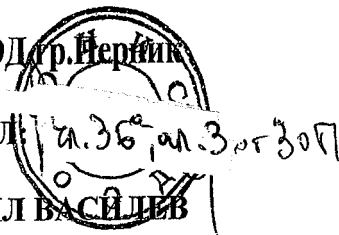 ОД гр.Перник
Л: чл.36а, ал.3 от ЗОП
Л ВАСИЛЕВ